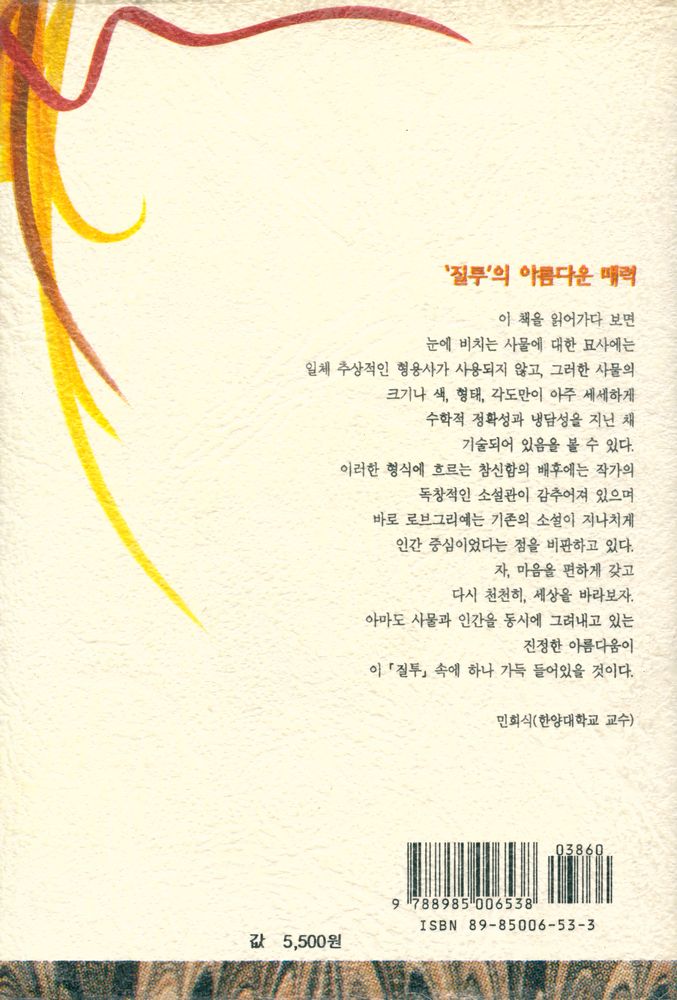 '질투'의 아름다운 매력
이 책을 읽어가다 보면
눈에 비치는 사물에 대한 묘사에는
일체 추상적인 형용사가 사용되지 않고, 그러한 사물의
크기나 색, 형태, 각도만이 아주 세세하게
수학적 정확성과 냉담성을 지닌 채
기술되어 있음을 볼 수 있다.
이러한 형식에 흐르는 참신함의 배후에는 작가의
독창적인 소설관이 감추어져 있으며
바로 로브그리예는 기존의 소설이 지나치게
인간 중심이었다는 점을 비판하고 있다.
자, 마음을 편하게 갖고
다시 천천히, 세상을 바라보자.
아마도 사물과 인간을 동시에 그려내고 있는
진정한 아름다움이
이 「질투」 속에 하나 가득 들어있을 것이다.
민희식(한양대학교 교수)
03860
9 788985 006538
ISBN 89-85006-53-3
값 5,500원